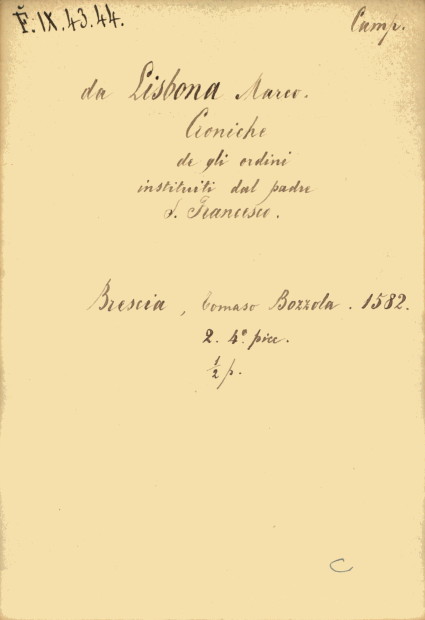 F. IX. 43. 44.
Camp.
da Lisbona Marco.
Croniche
de gli ordini
instituiti dal padre
S. Francesco.
Brescia, Tomaso Bozzola. 1582.
2. 4º picc.
½ p.
C